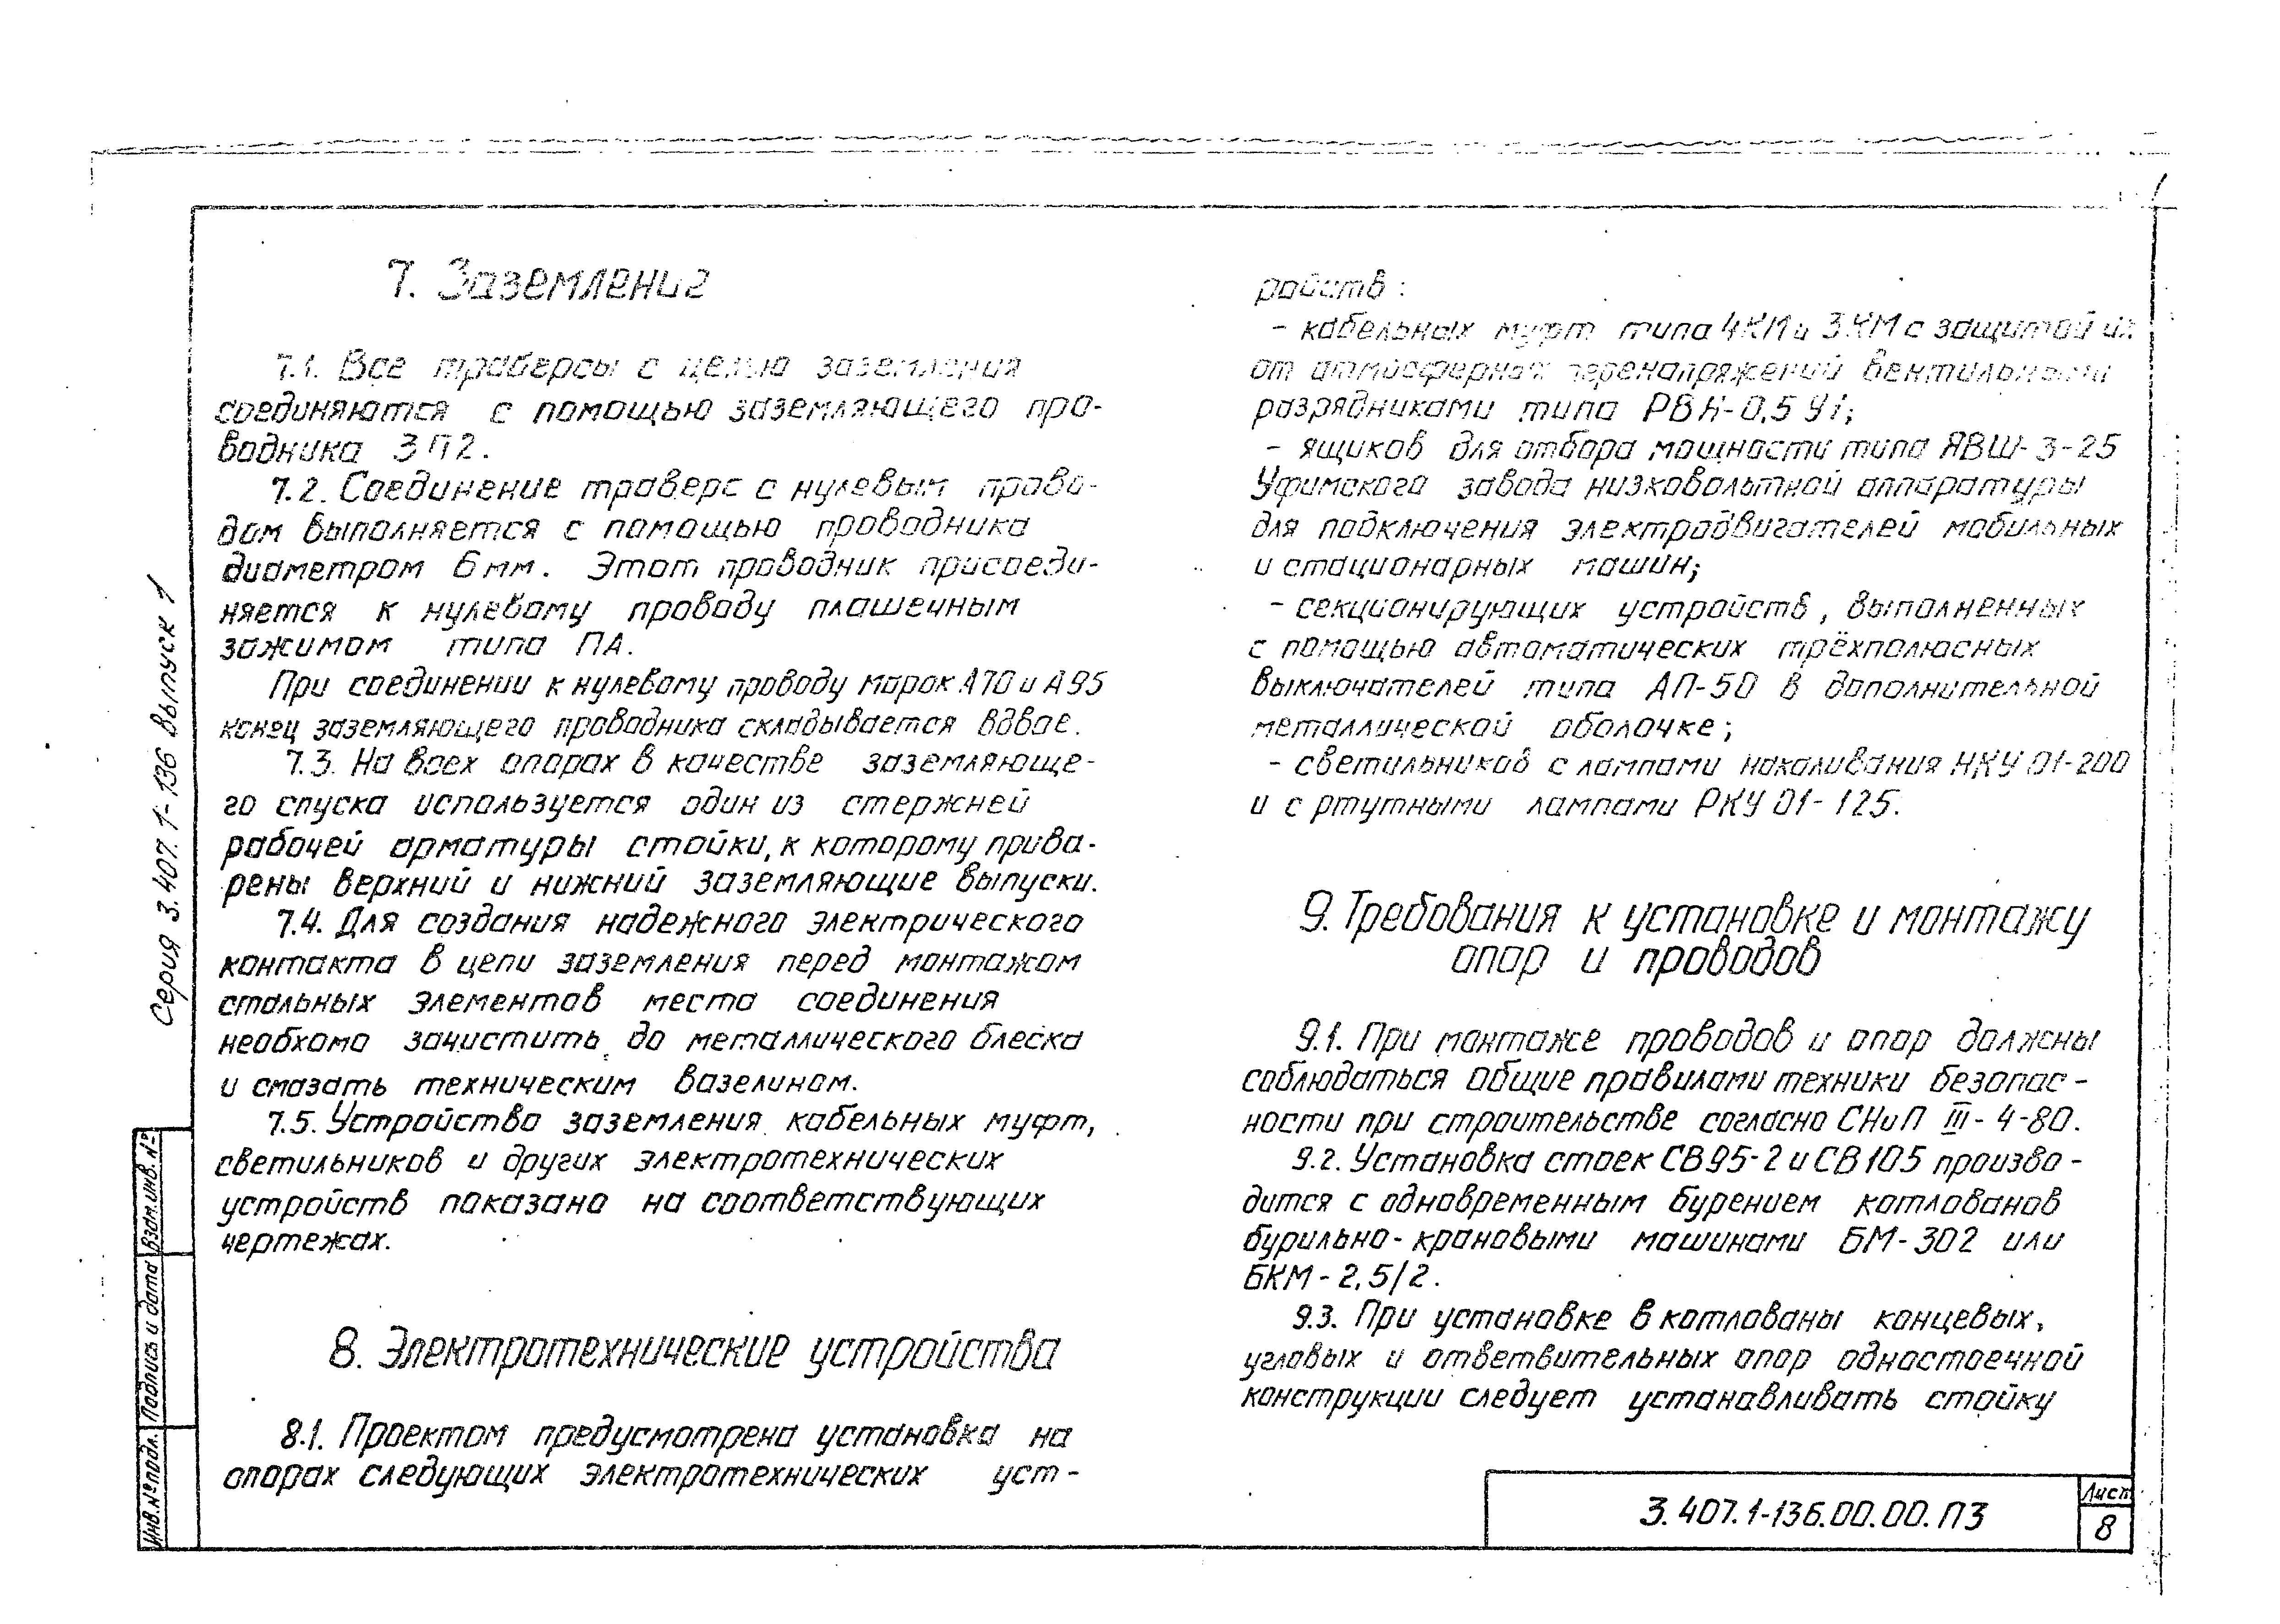 7. Заземление
7.1. Все траверсы с целью заземления
соединяются с помощью заземляющего про-
водника ЗП2.
7.2. Соединение траверс с нулевым прово-
дом выполняется с помощью проводника
диаметром 6мм. Этот проводник присоеди-
няется к нулевому проводу плашечным
зажимом типа ПА.
При соединении к нулевому проводу марок А70 и А95
конец заземляющего проводника складывается вдвое.
7.3. На всех опорах в качестве заземляюще-
го спуска используется один из стержней
рабочей арматуры стойки, к которому прива-
рены верхний и нижний заземляющие выпуски.
7.4. Для создания надежного электрического
контакта в цепи заземления перед монтажом
стальных элементов места соединения
необхомо зачистить до металлического блеска
и смазать техническим вазелином.
7.5. Устройство заземления кабельных муфт,
светильников и других электротехнических
устройств показано на соответствующих
чертежах.
8. Электротехнические устройства
8.1. Проектом предусмотрена установка на
опорах следующих электротехнических уст-
ройств:
- кабельных муфт типа 4КМ и 3КМ с защитой их
от атмосферных перенапряжений вентильными
разрядниками типа РВН-0,5 У1;
- ящиков для отбора мощности типа ЯВШ-3-25
Уфимского завода низковольтной аппаратуры
для подключения электродвигателей мобильных
и стационарных машин;
- секционирующих устройств, выполненных
с помощью автоматических трёхполюсных
выключателей типа АП-50 в дополнительной
металлической оболочке;
- светильников с лампами накаливания НКУ 01-200
и с ртутными лампами РКУ 01-125.
9. Требования к установке и монтажу
опор и проводов
9.1. При монтаже проводов и опор должны
соблюдаться общие правилами техники безопас-
ности при строительстве согласно СНиП III-4-80.
9.2. Установка стоек СВ95-2 и СВ105 произво-
дится с одновременным бурением котлованов
бурильно-крановыми машинами БМ-302 или
БКМ-2,5/2.
9.3. При установке в котлованы концевых,
угловых и ответвительных опор одностоечной
конструкции следует устанавливать стойку
Серия 3.407.1-136 Выпуск 1
Взам.инв.№
Подпись и дата
Инв.№подл.
3.407.1-136.00.00.ПЗ
Лист
8